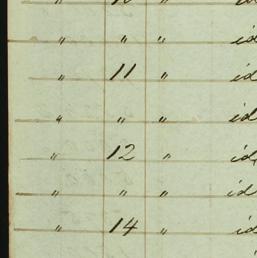 " " " id
" 11 " id
" " " id
" 12 " id
" " " id
" 14 " id